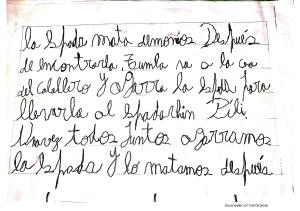 la Spada mata demonios Después
de encontrarla, Zumba va a la casa
del caballero y agarra la Spada para
llevarla al Spadachin Bili.
Una vez todos juntos agarramos
la Spada y lo matamos después
Escaneado con CamScanner